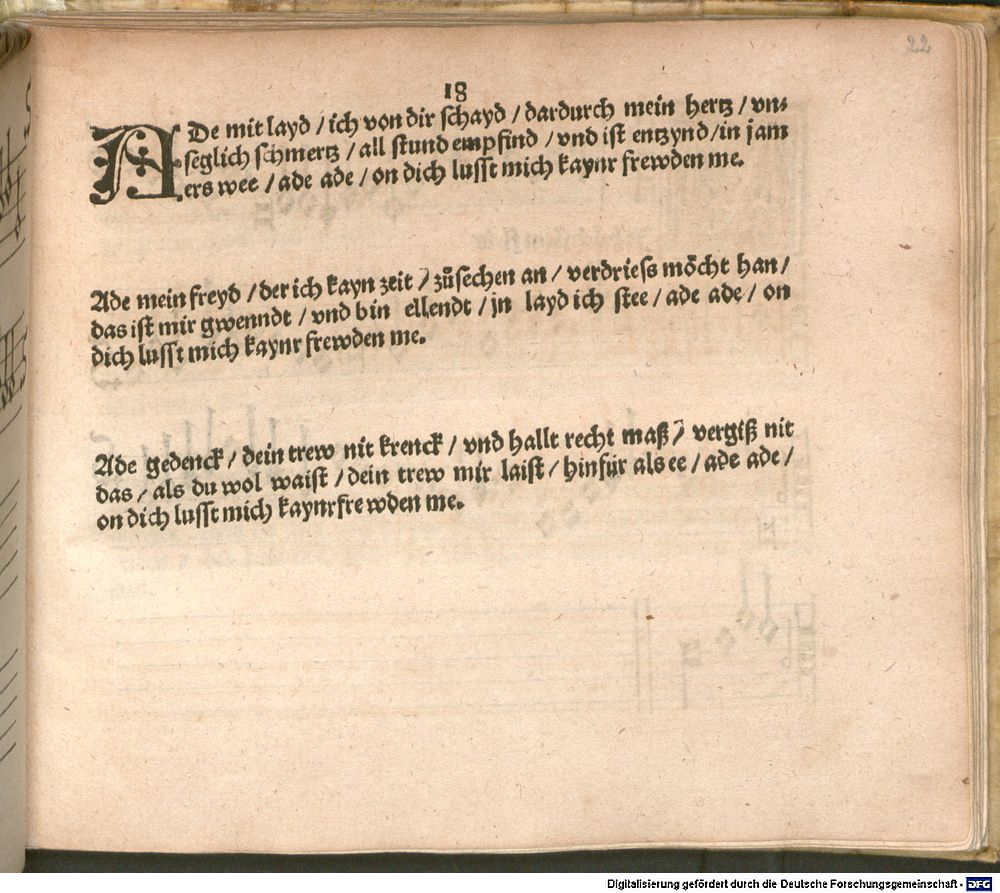 22
18
ADe mit layd / ich von dir schayd / dardurch mein hertz / vn⸗
seglich schmertz / all stund empfind / vnd ist entzynd / in jam
ers wee / ade ade / on dich lusst mich kaynr frewden me.
Ade mein freyd / der ich kayn zeit / zůsechen an / verdriess mȯcht han /
das ist mir gwenndt / vnd bin ellendt / jn layd ich stee / ade ade / on
dich lusst mich kaynr frewden me.
Ade gedenck / dein trew nit krenck / vnd hallt recht maß / vergiß nit
das / als du wol waist / dein trew mir laist / hinfür als ee / ade ade /
on dich lusst mich kaynr frewden me.
Digitalisierung gefördert durch die Deutsche Forschungsgemeinschaft - DFG